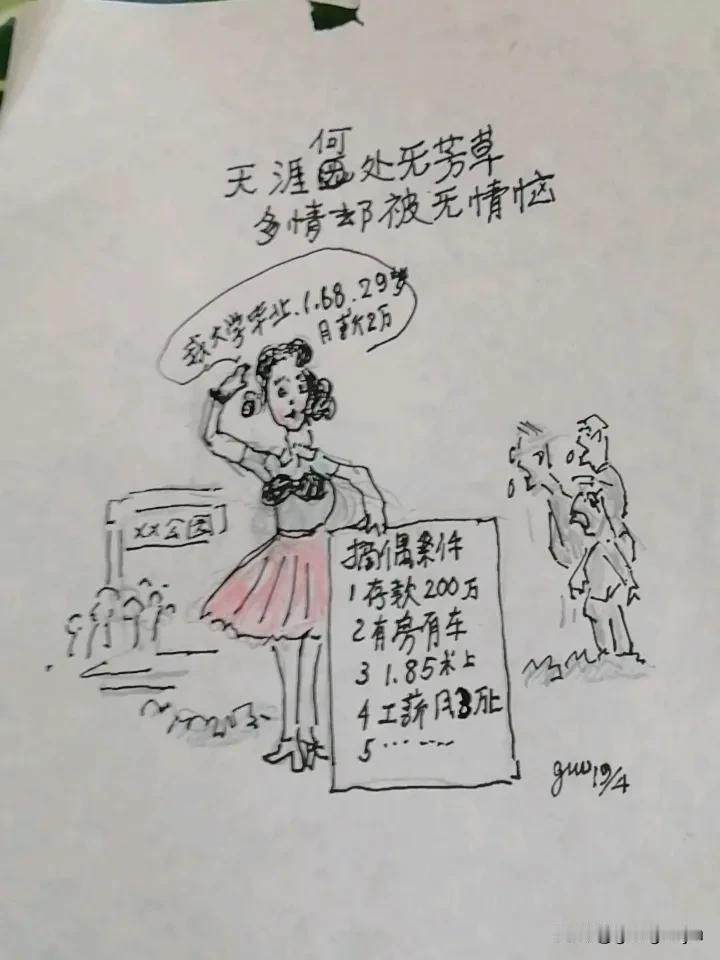 天涯何处无芳草
多情却被无情恼
我大学毕业.1.68.29岁
月薪2万
XX公园
择偶条件
1 存款200万
2 有房有车
3 1.85米上
4 工薪月3万上
5 ……
guo 19/4